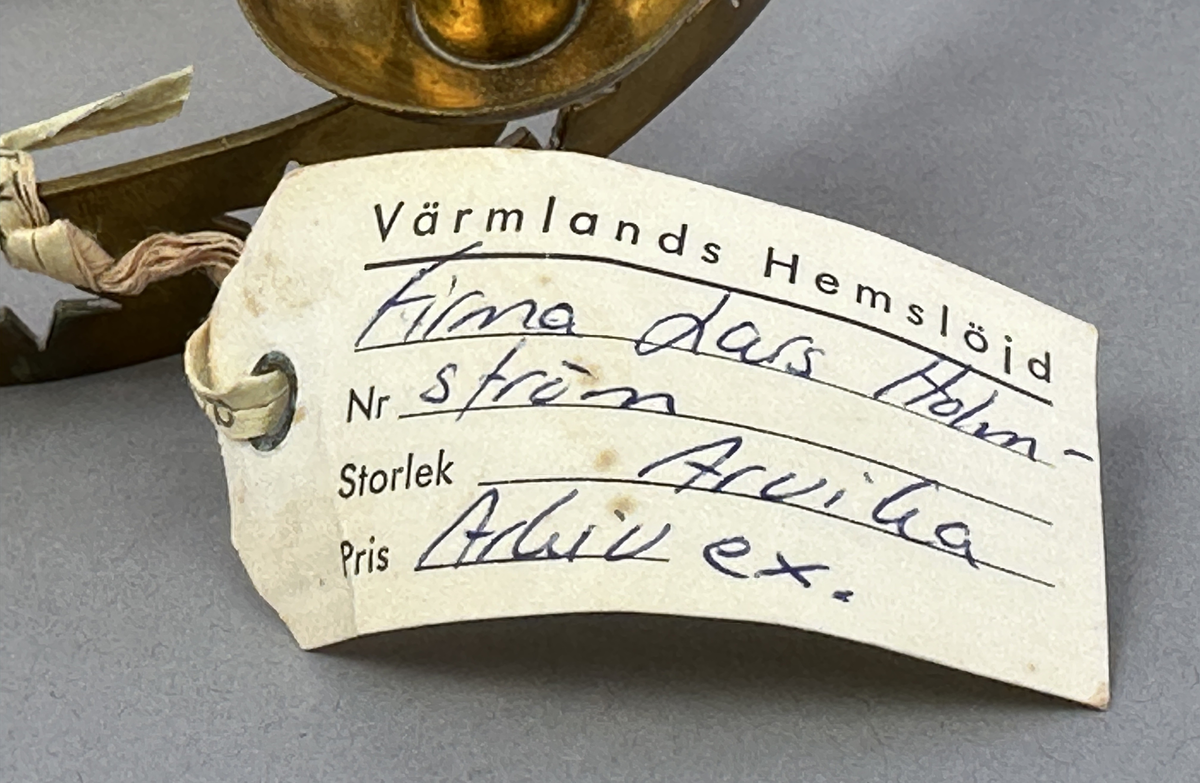 Värmlands Hemslöjd
Firma Lars Holm-
Nr ström
Storlek Arvika
Pris Arkiv ex.